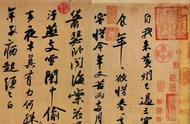 自我来黄州已過三寒
食年〻欲惜春〻去不
容惜今年又苦雨兩月秋
蕭瑟卧聞海棠花泥
汙燕支雪闇中偷
負去夜半真有力何殊
病少年病起頭已白